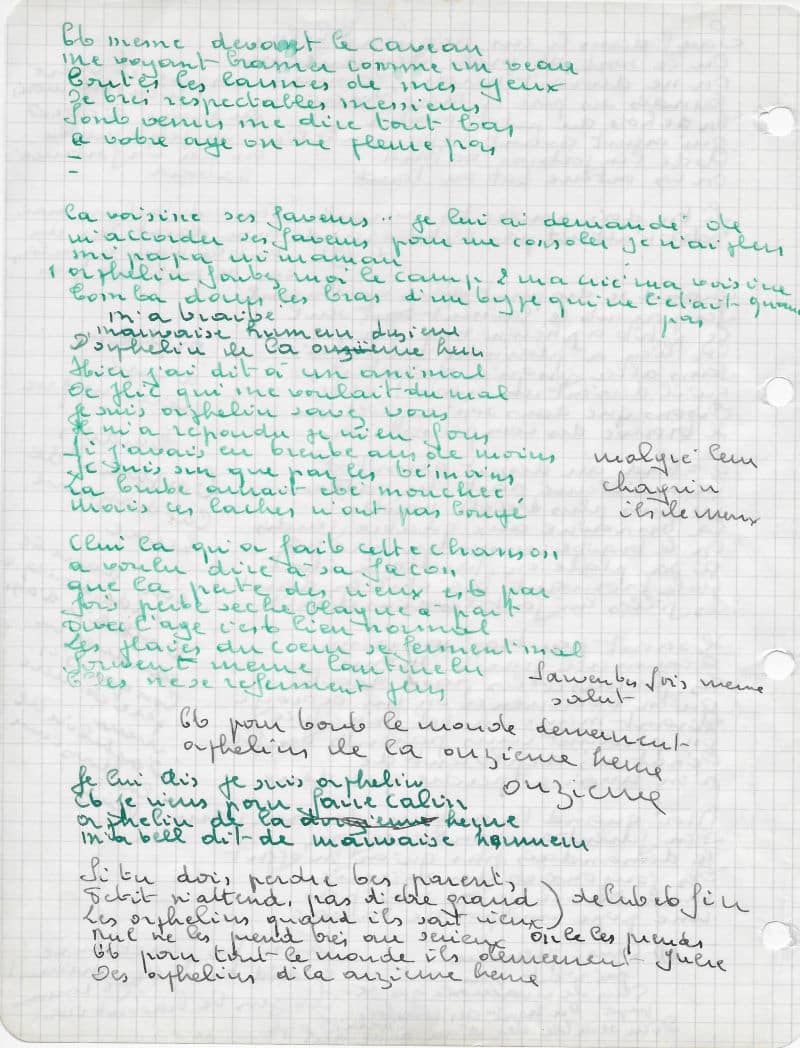 Et meme devant le caveau
me voyant bramer comme un veau
toutes les larmes de mes yeux
De tres respectables messieurs
Sont venus me dire tout bas
a votre age on ne pleure pas
=
La voisine ses faveurs .. je lui ai demandé de
m'accorder ses faveurs pour me consoler je n'ai plus
ni papa ni maman
1 orphelin foutez moi le camp & ma voisine
tomba dans les bras d'un type qui ne l'était quand
pas
m'a traité
mauvaise humeur
D'orphelin de la onzieme heure
Hier j'ai dit à un animal
De flic qui me voulait du mal
Je suis orphelin savez vous
Il m'a repondu je m'en fous
Si j'avais eu trente ans de moins
Je suis sur que par les témoins
La brute aurait été mouchée
mais ces laches n'ont pas bougé
malgré leur
chagrin
ils
Clui la qu'a fait cette chanson
a voulu dire à sa facon
que la perte des vieux est par
fois perte seche blague à part
avec l'age c'est bien normal
Les plaies du coeur se ferment mal
Souvent meme
Elles ne se referment plus
fois meme
salut
Et pour tout le monde demeurent
orphelins de la onzieme heure
onzieme
Je lui dis je suis orphelin
Et je viens pour faire calin
orphelin de la heure
m'a dit de mauvaise humeur
Si tu dois perdre tes parents
Petit n'attend pas d'etre grand ) debut et fin
Les orphelins quand ils sont vieux
Nul ne les prend tres au serieux On ne les prend
Et pour tout le monde ils demeurent guere
Des orphelins d'la onzieme heure